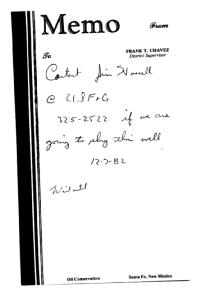 Memo
From
FRANK T. CHAVEZ
District Supervisor
To
Contact Jim
@
325-2522 if we are
going to plug this well
12-7-82
Oil Conservation
Santa Fe, New Mexico